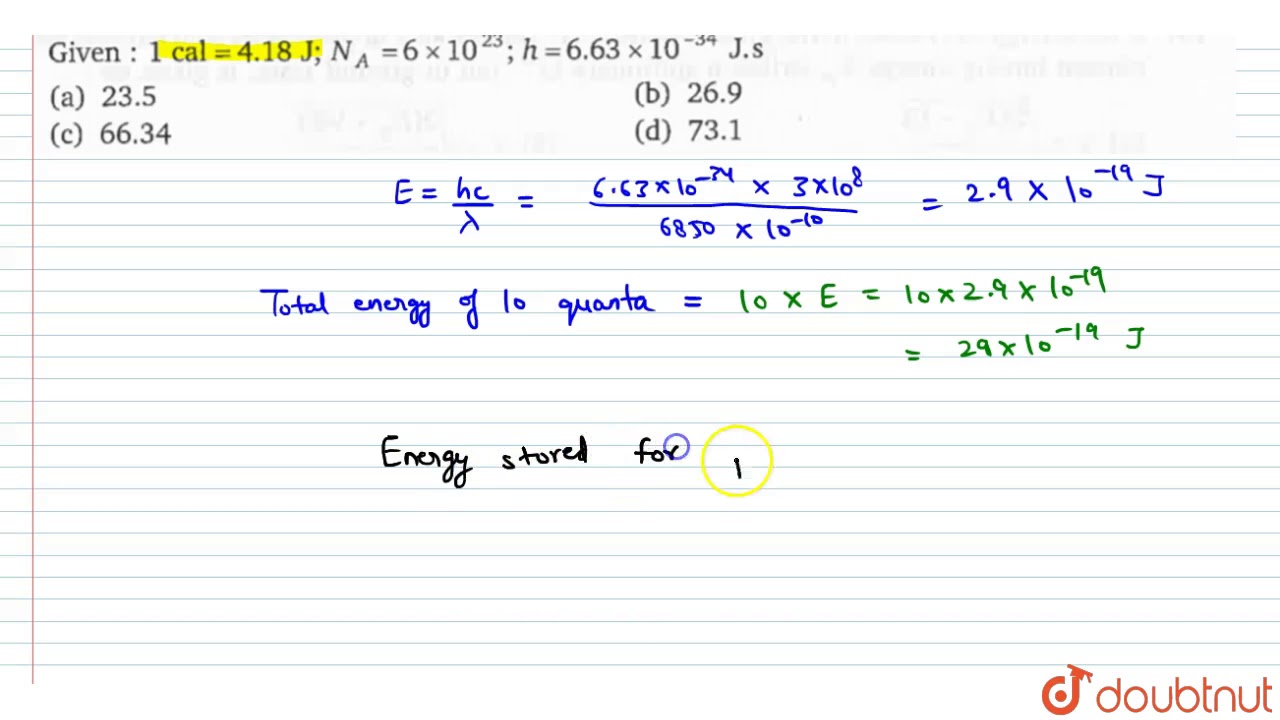 Given : 1 cal = 4.18 J; N_A = 6 × 10^23; h = 6.63 × 10^-34 J.s
(a) 23.5 (b) 26.9
(c) 66.34 (d) 73.1
E = hc/λ = 6.63×10^-34 × 3×10^8 / 6850 × 10^-10 = 2.9 × 10^-19 J
Total energy of 10 quanta = 10 × E = 10 × 2.9 × 10^-19
= 29 × 10^-19 J
Energy stored for 1
doubtnut